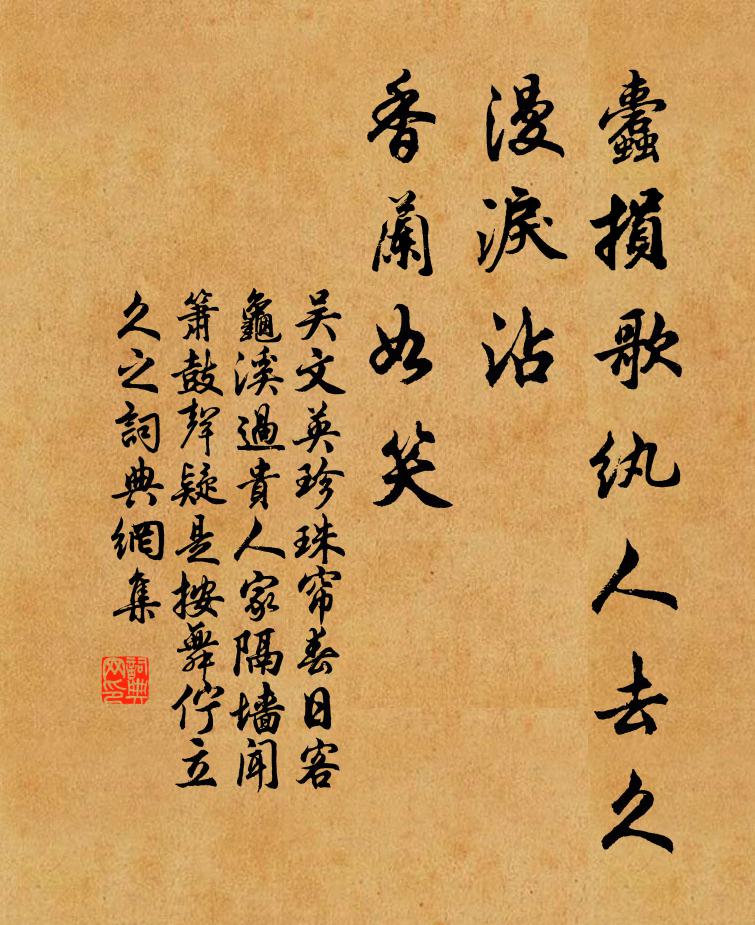 蠹損歌紈人去久
漫淚沾
香蘭如笑
吴文英珍珠帘春日客
龜溪過貴人家隔墙闻
箫鼓聲疑是按舞伫立
久之詞典網集
詞典网印